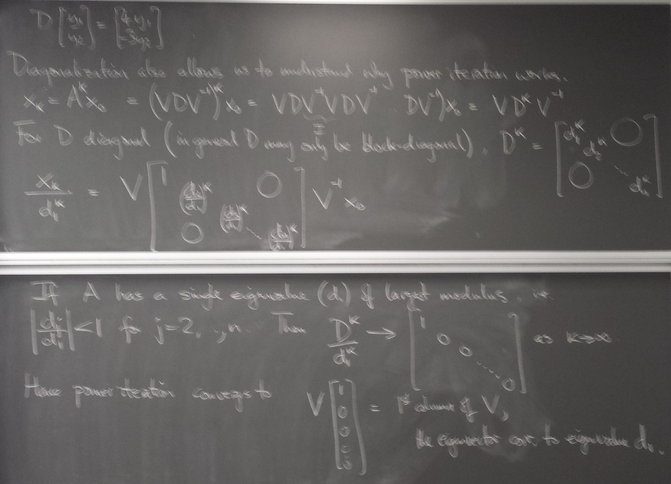 D [y₁ y₂] = [2y₁ -3y₂]
Diagonalisation also allows us to understand why power iteration works.
x_k = A^k x₀ = (VDV⁻¹)^k x₀ = VDV⁻¹VDV⁻¹ DV⁻¹)x₀ = VD^kV⁻¹
I
For D diagonal (in general D may only be block-diagonal), D^k = [d₁^k d₂^k ⋱ d_n^k 0 0]
x_k/d₁^k = V [1 (d₂/d₁)^k (d₃/d₁)^k ⋱ (d_n/d₁)^k 0 0] V⁻¹ x₀
If A has a single eigenvalue (d₁) of largest modulus, i.e.
|d_j/d₁| < 1 for j=2,..,n. Then D^k/d₁^k → [1 0 0 ⋱ 0] as k→∞
Hence power iteration converges to V [1 0 0 ⋮ 0] = 1st column of V,
the eigenvector corr. to eigenvalue d₁.